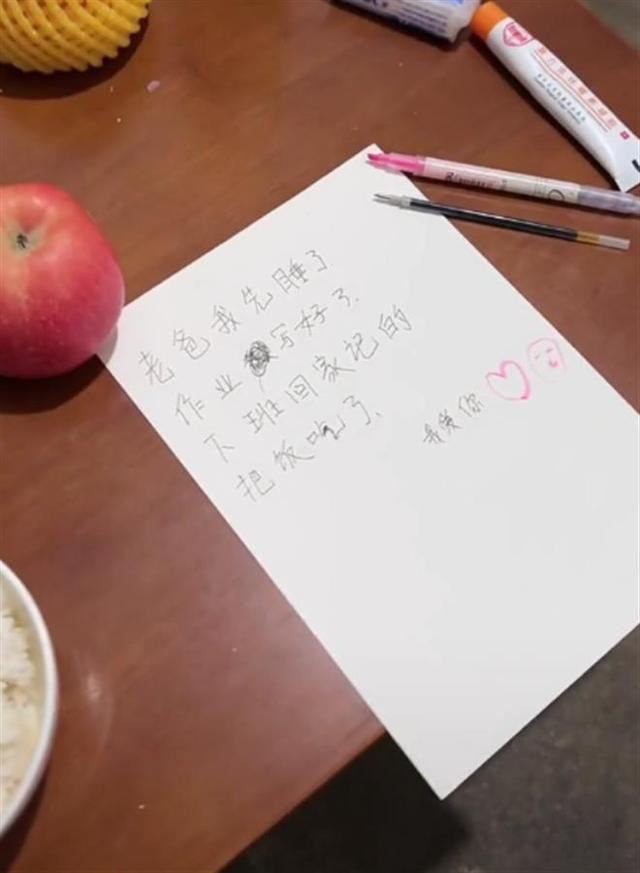 老爸我先睡了
作业写好了.
下班回家记的
把饭吃了.
我爱你